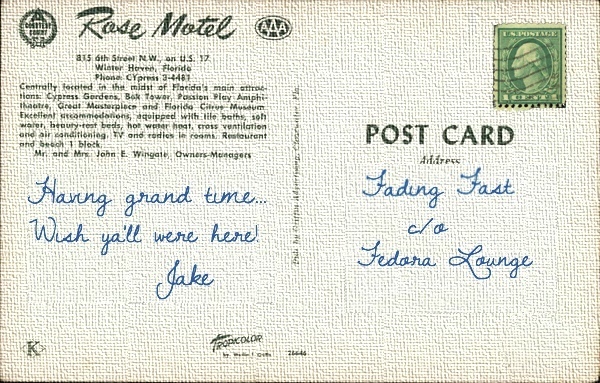 Rose Motel
AAA
815 6th Street N.W., on U.S. 17
Winter Haven, Florida
Phone: CYpress 3-4481
Centrally located in the midst of Florida's main attrac-
tions: Cypress Gardens, Bok Tower, Passion Play Amphi-
theatre, Great Masterpiece and Florida Citrus Museum.
Excellent accommodations, equipped with tile baths, soft
water, beauty-rest beds, hot water heat, cross ventilation
and air conditioning. TV and radios in rooms. Restaurant
and beach 1 block.
Mr. and Mrs. John E. Wingate, Owners-Managers
Having grand time...
Wish ya'll were here!
Jake
K
TROPICOLOR
26646
U.S. POSTAGE
POST CARD
Address
Fading Fast
c/o
Fedora Lounge